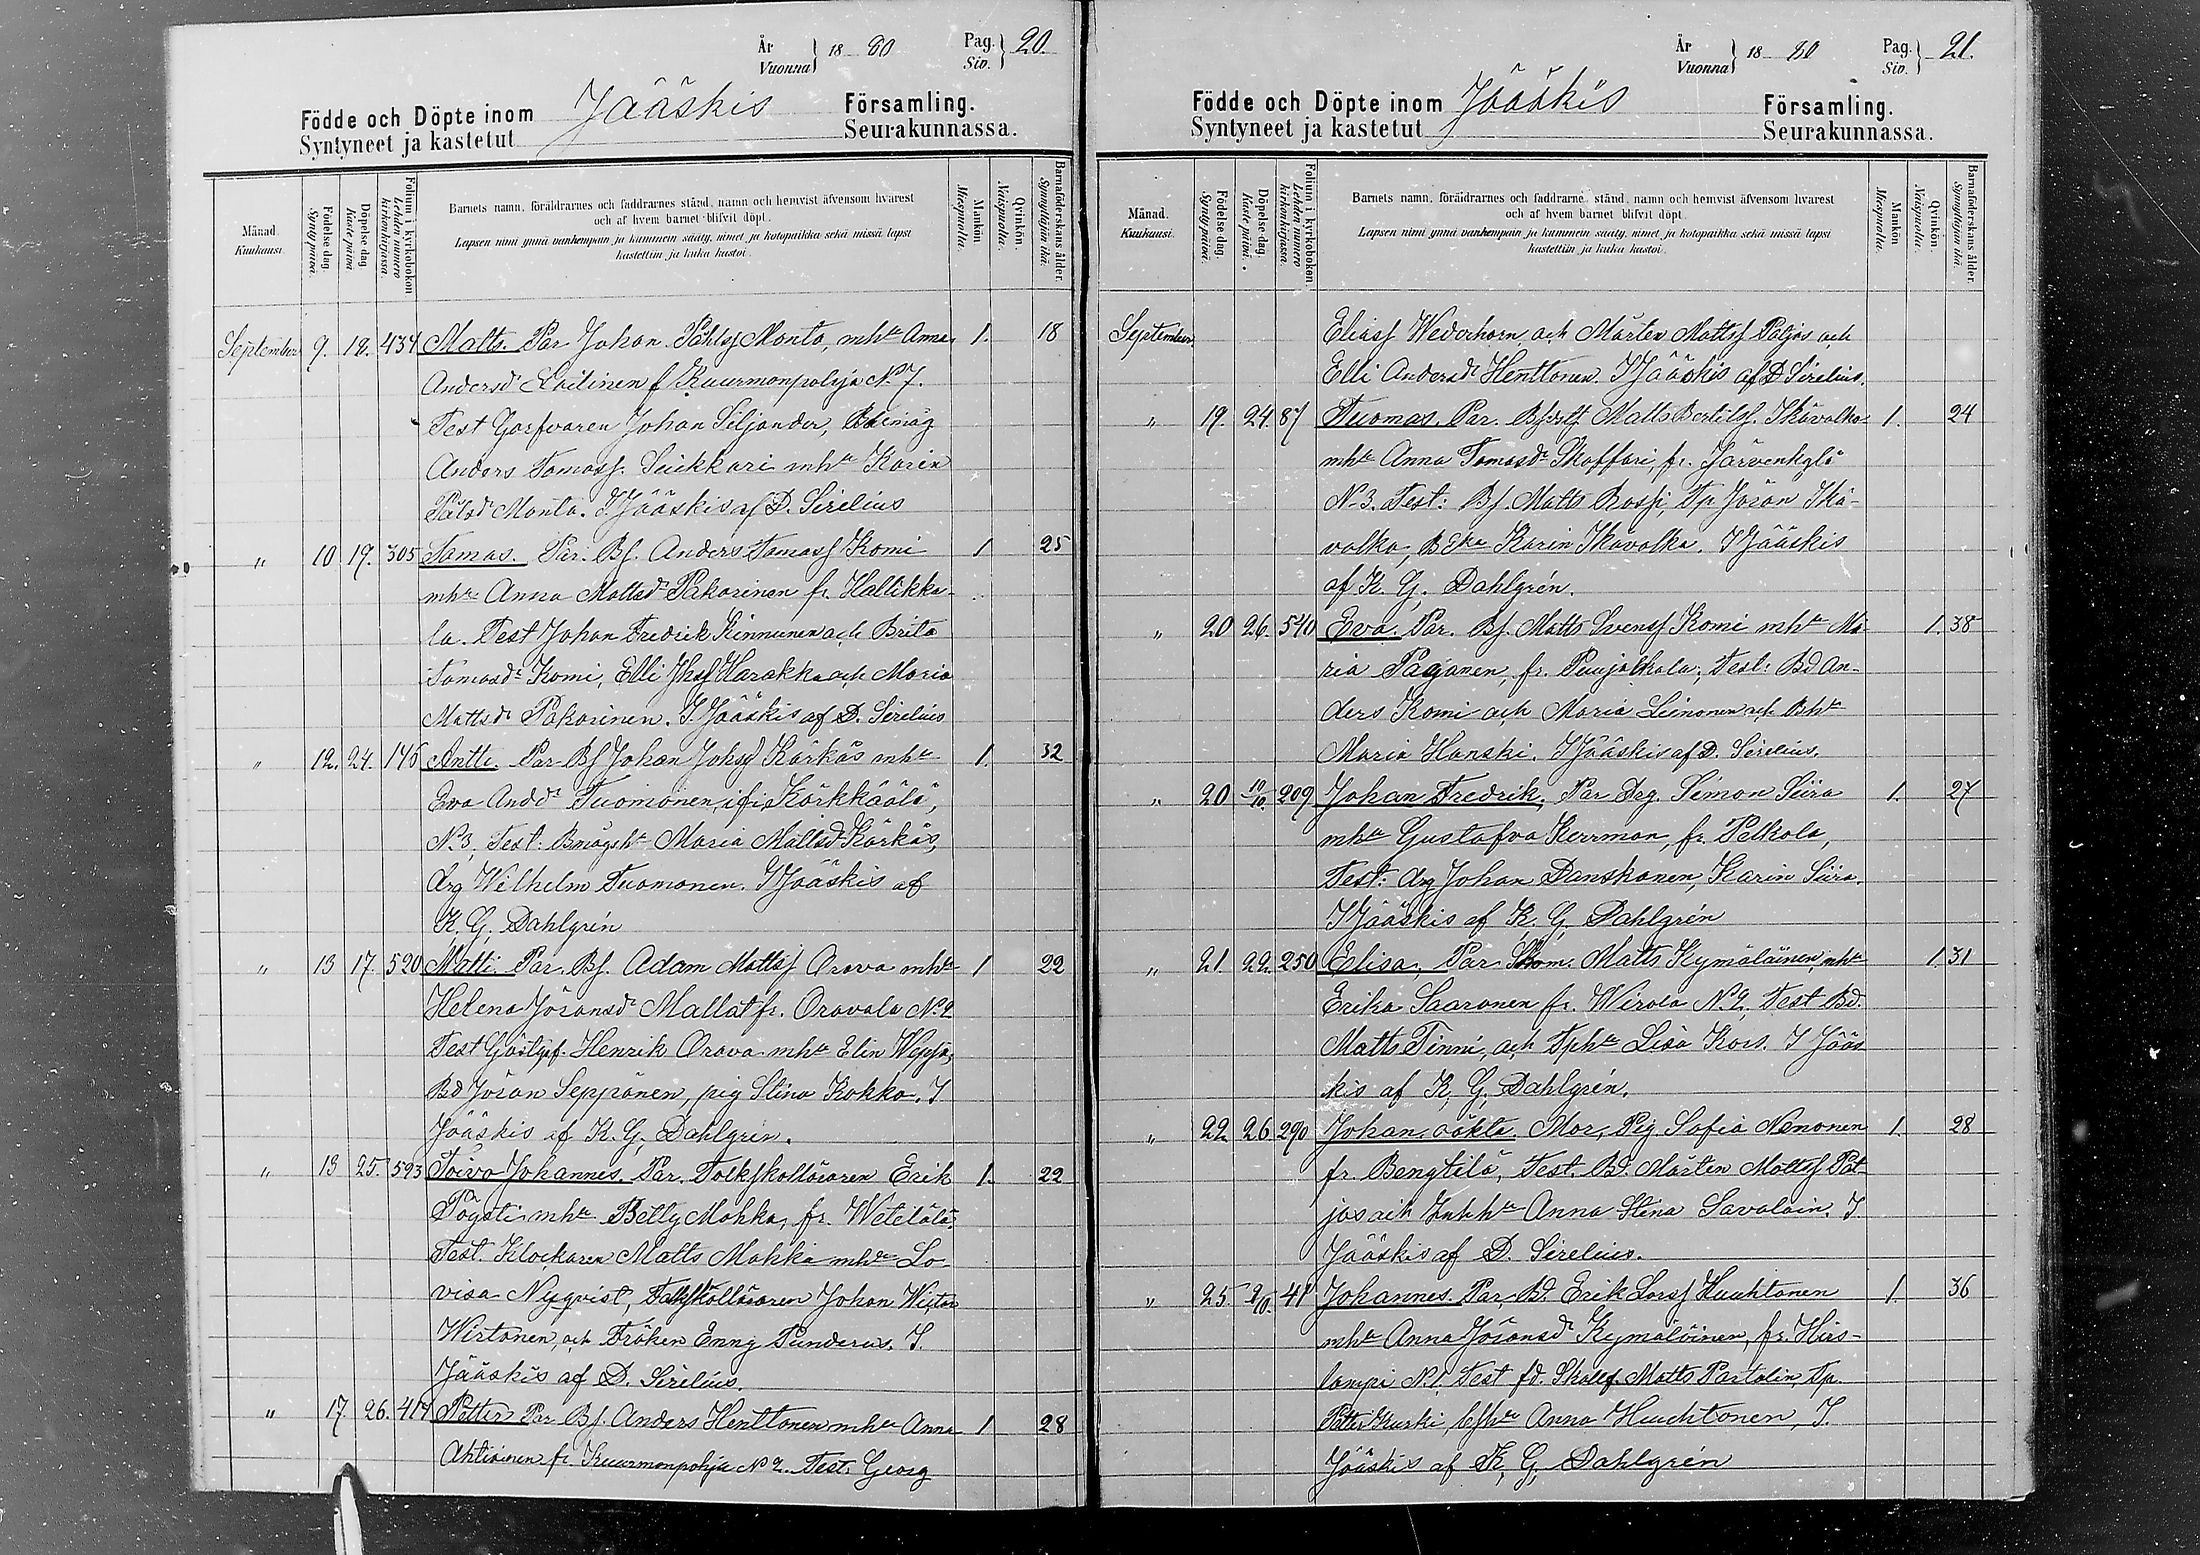 År
Vuonna } 18 80 Pag. Siv. } 20.
Födde och Döpte inom Jääskis Församling.
Syntyneet ja kastetut Seurakunnassa.
Månad. Kuukausi.
Födelse dag. Syntypäivä.
Döpelse dag. Kastepäivä.
Folium i kyrkoboken. Lehden numero kirkonkirjassa.
Barnets namn, föräldrarnes och faddrarnes stånd, namn och hemvist äfvensom hvarest
och af hvem barnet blifvit döpt.
Lapsen nimi ynnä vanhempain ja kummein sääty, nimet ja kotopaikka sekä missä lapsi
kastettiin ja kuka kastoi.
Mankön. Miespuolta.
Qvinkön. Naispuolta.
Barnaföderskans ålder. Synnyttäjän ikä.
September 9. 18. 434 Matts. Par Johan Påhlsf Monto, mhu Anna 1. 18
Andersdr Loilinen f Kuurmonpohja N. 7.
Test Garfvaren Johan Siljander, Bdeimåg
Anders Tomasf. Suikkari mhu Karin
Pålsdr Monto. I Jääskis af D. Sirelius
" 10 19. 305 Tomas. Par. Bf. Anders Tomasf Komi 1 25
mhu Anna Mattsdr Pakarinen fr. Hallikka-
la. Test Johan Fredrik Kinnunen och Brita
Tomasdr Komi, Elli Jhsf Harakka och Maria
Mattsdr Pakarinen. I Jääskis af D. Sirelius
" 12. 24. 146 Antti. Par Bf Johan Johsf Kärkäs mhu 1. 32
Eva Anddr Tuomonen, ifr Kärkkäälä,
N. 3, Test: Bmågshu Maria Mattsdr Kärkäs,
drg Wilhelm Tuomonen. I Jääskis af
K. G. Dahlgrén
" 13 17. 520 Matti. Par. Bf. Adam Mattsf Orava mhu 1 22
Helena Jöransdr Mallat fr. Oravala N. 2
Test Gästgif. Henrik Orava mhu Elin Wepsä,
Bd Jöran Seppänen, pig Stina Kokko. I
Jääskis af K. G. Dahlgrén.
" 13 25. 593 Toivo Johannes. Par. Folkskolläraren Erik 1. 22
Pögsti mhu Betty Mahka, fr. Wetelälä
Test. Klockaren Matts Mahka mhu Lo-
visa Nyqvist, Folkskolläraren Johan Wictor
Wirtonen, och Fröken Emmy Punderus. I
Jääskis af D. Sirelius.
" 17. 26. 414 Petter. Par Bf. Anders Henttonen mhu Anna 1 28
Ahtiainen fr. Kuurmonpohja N 2. Test: Georg
År
Vuonna } 18 80 Pag. Siv. } 21.
Födde och Döpte inom Jääskis Församling.
Syntyneet ja kastetut Seurakunnassa.
Månad. Kuukausi.
Födelse dag. Syntypäivä.
Döpelse dag. Kastepäivä.
Folium i kyrkoboken. Lehden numero kirkonkirjassa.
Barnets namn, föräldrarnes och faddrarne stånd, namn och hemvist äfvensom hvarest
och af hvem barnet blifvit döpt.
Lapsen nimi ynnä vanhempain ja kummein sääty, nimet ja kotopaikka sekä missä lapsi
kastettiin ja kuka kastoi.
Mankön. Miespuolta.
Qvinkön. Naispuolta.
Barnaföderskans ålder. Synnyttäjän ikä.
September. Eliasf Wederhorn och Mårten Mattsf Paljas och
Elli Andersdr Henttonen. I Jääskis af D Sirelius.
" 19. 24. 87 Tuomas. Par. Matts Bertilsf. Ikävalko 1. 24
mhu Anna Tomasdr Skaffari, fr. Järvenkylä
N. 3. Test: Bf. Matts Rossi, Tp Jöran Ikä-
valko, Bdka Karin Ikävalko. I Jääskis
af K. G. Dahlgrén.
" 20 26. 540 Eva. Par. Bf. Matts Svensf Komi mhu Ma- 1. 38
ria Paajanen, fr. Puujalkala, Test: Bd An-
ders Komi och Maria Leinonen och Bhu
Maria Hanski. I Jääskis af D. Sirelius.
" 20 10/10. 209 Johan Fredrik. Par Drg. Simon Siira 1. 27
mhu Gustafva Herrman, fr. Pelkola,
Test: drg Johan Danskanen, Karin Siira.
I Jääskis af K. G. Dahlgrén
" 21. 22. 250 Elisa. Par Skom. Matts Kymäläinen, mhu 1. 31
Erika Saaronen fr. Wirola N. 2, Test Bd.
Matts Tinni, och Tphu Lisa Kors. I Jääs
kis af K. G. Dahlgrén.
" 22 26 290 Johan, oäkta. Mor, Pig. Sofia Nenonen 1. 28
fr. Bengtilä, Test. Bd. Mårten Mattsf Pal-
jas och Inhhu Anna Stina Savolain. I
Jääskis af D. Sirelius.
" 25. 2/10. 41 Johannes. Par, Bd. Erik Larsf Huuhtanen 1. 36
mhu Anna Jöransdr Kymäläinen, fr. Hirs-
lampi N. 1, Test fd. Matts Partalin, Tp.
Petter Kurki, Anna Huuhtonen, I.
Jääskis af K. G. Dahlgrén